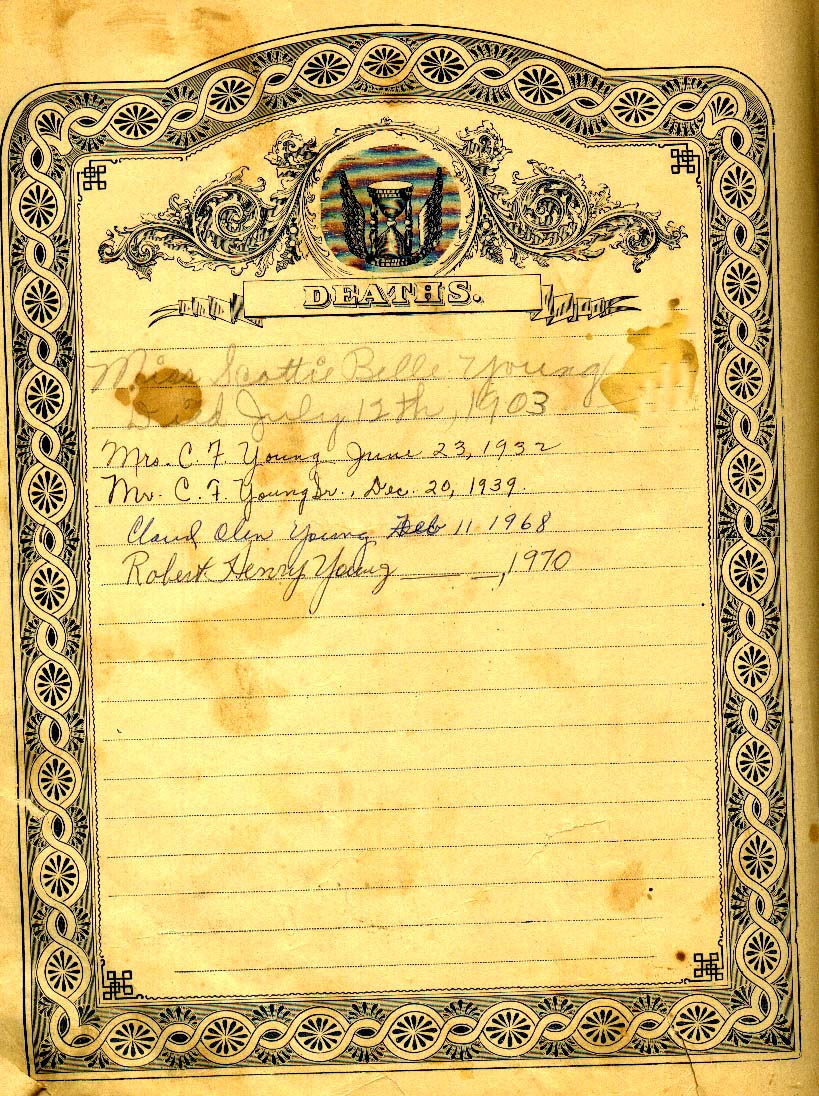 DEATHS.
Miss Scottie Belle Young
Died July 12th, 1903
Mrs. C. F. Young June 23, 1932
Mr. C. F. Young Sr., Dec. 20, 1939.
Claud Olen Young Feb 11 1968
Robert Henry Young ____ __, 1970